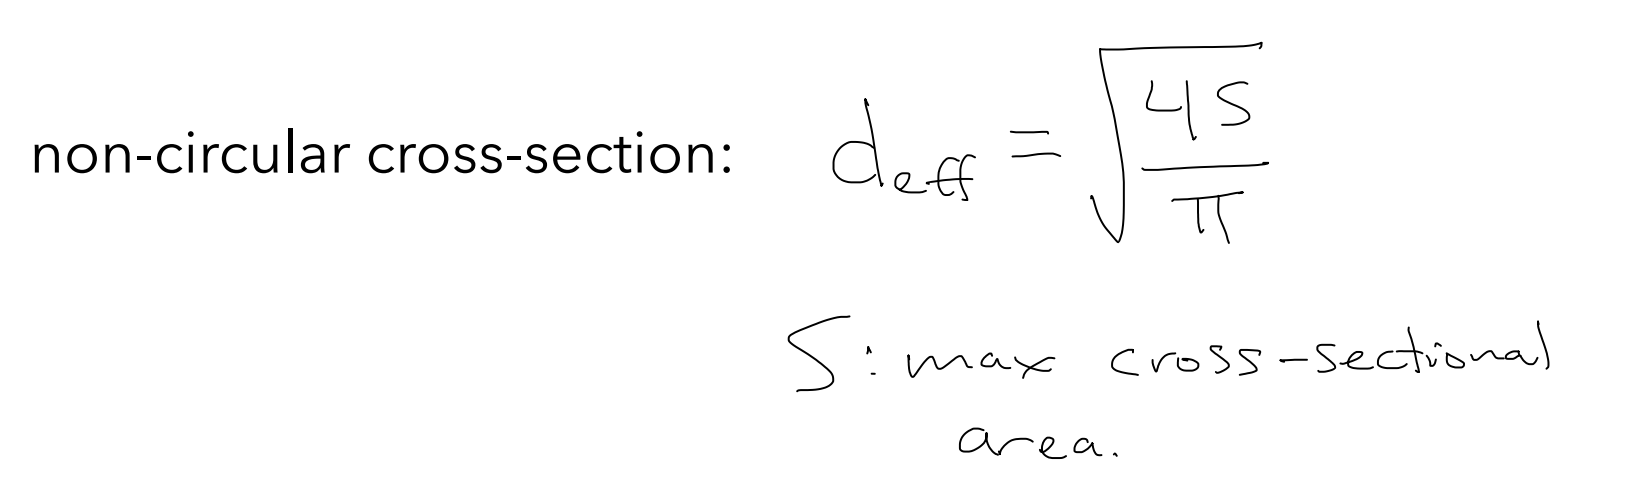 non-circular cross-section: d_eff = √(4S/π)
S: max cross-sectional
area.